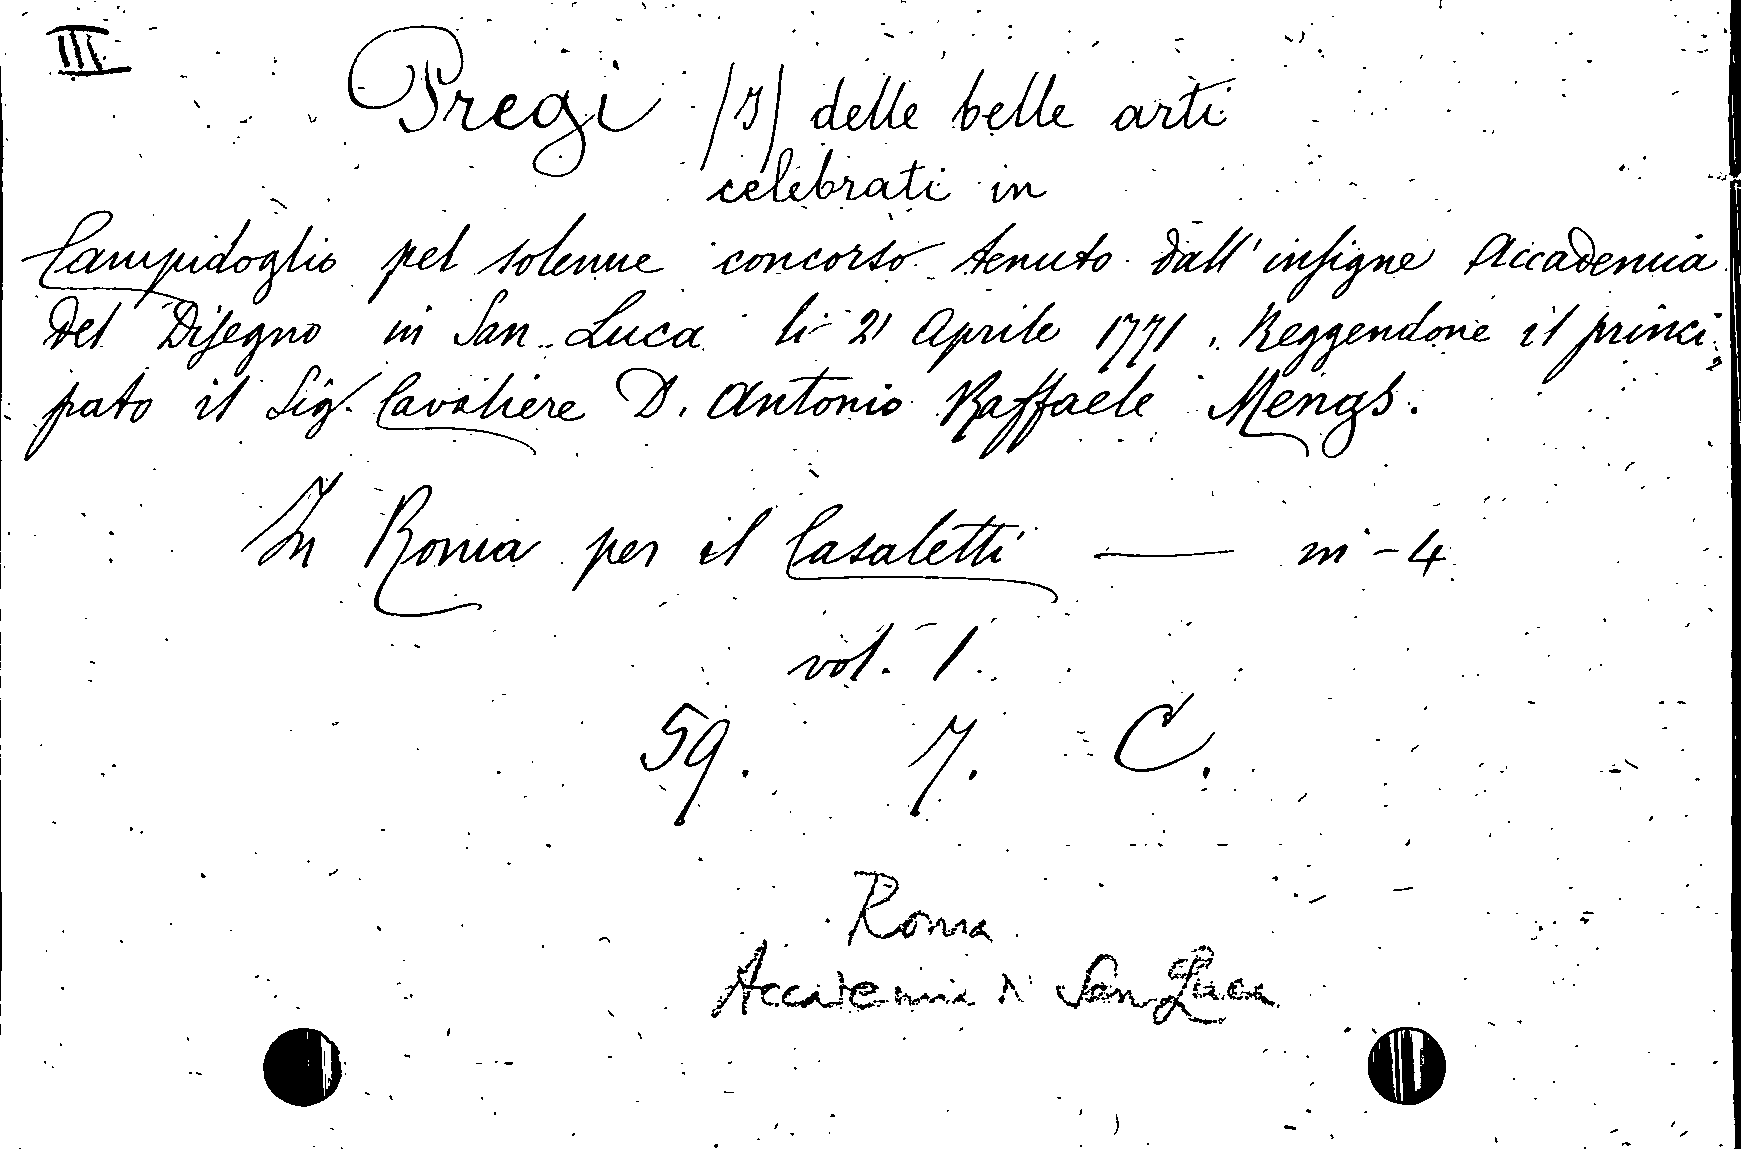 III
Pregi /I/ delle belle arti
celebrati in
Campidoglio pel solenne concorso tenuto dall' insigne Accademia
del Disegno in San Luca li 21 Aprile 1771. Reggendone il princi„
pato il Sig. Cavaliere D. Antonio Raffaele Mengs.
In Roma per il Casaletti — in-4
vol. 1.
59. 7. C.
Roma
Accademia di San Luca